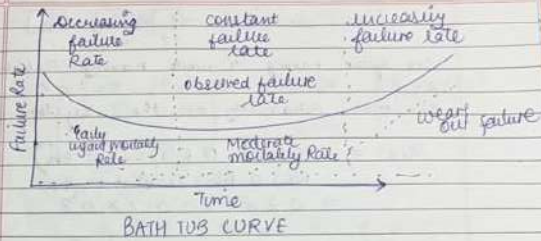 Decreasing
failure
Rate
constant
failure
rate
increasing
failure rate
observed failure
rate
Failure Rate
Early
mortality
Rate
Moderate
mortality Rate
wear
out failure
Time
BATH TUB CURVE